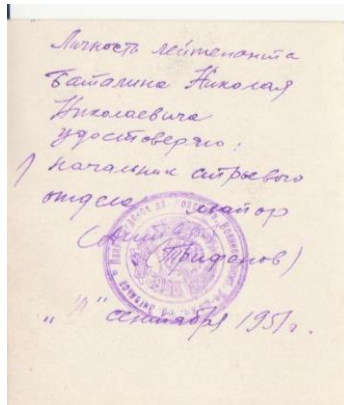 Личность лейтенанта
Баталина Николая
Николаевича
удостоверяю:
Начальник строевого
отдела майор
(Трифонов)
"4" сентября 1951г.